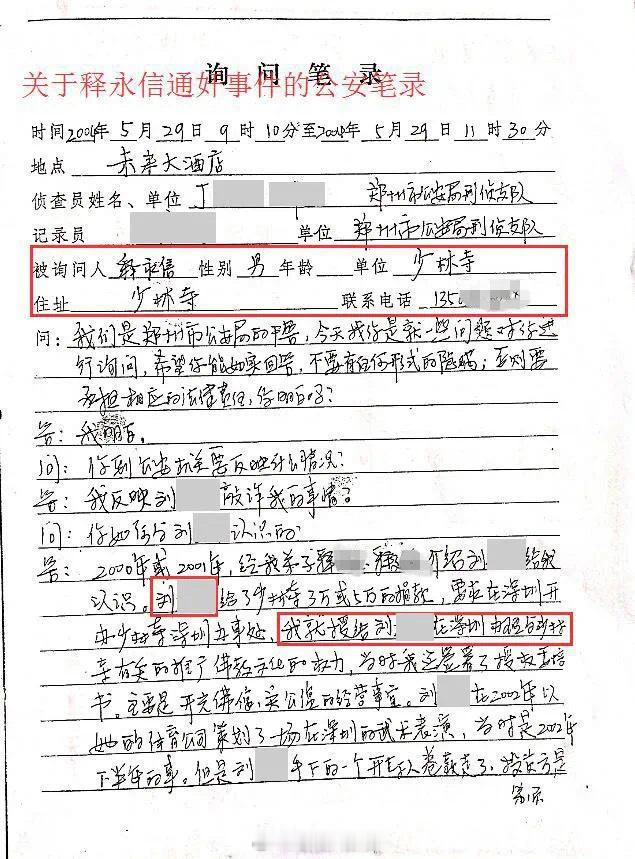 询问笔录
关于释永信通奸事件的公安笔录
时间2004年5月29日9时10分至2004年5月29日11时30分
地点 未来大酒店
侦查员姓名、单位 丁 郑州市公安局刑侦支队
记录员 单位 郑州市公安局刑侦支队
被询问人 释永信 性别 男 年龄 单位 少林寺
住址 少林寺 联系电话 135
问：我们是郑州市公安局的干警，今天找你是就一些问题对你进
行询问，希望你能如实回答，不要有任何形式的隐瞒，否则要
承担相应的法律责任，你明白吗？
答：我明白。
问：你到公安机关要反映什么情况？
答：我反映刘 敲诈我的事情？
问：你如何与刘 认识的
答：2000年或2001年，经我弟子释 释 介绍刘 给我
认识。刘 给了少林寺3万或5万的捐款，要求在深圳开
办少林寺深圳办事处，我就授给刘 在深圳办理与少林
寺有关的推广佛教文化的权力，当时我还签署了授权委托
书。主要是开光佛信，卖公信的经营事宜。刘 在2002年以
她的体育公司策划了一场在深圳的武术表演，当时是2002年
下半年的事。但是刘 手下的一个开走人卷款走了，投资方是